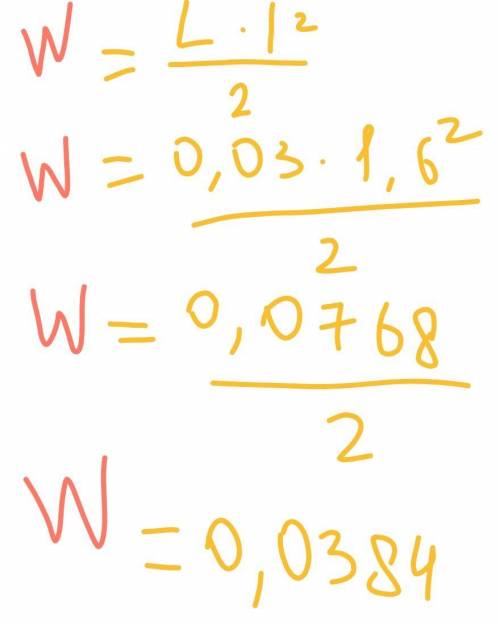 W = L · I²/2
W = 0,03 · 1,6²/2
W = 0,0768/2
W = 0,0384